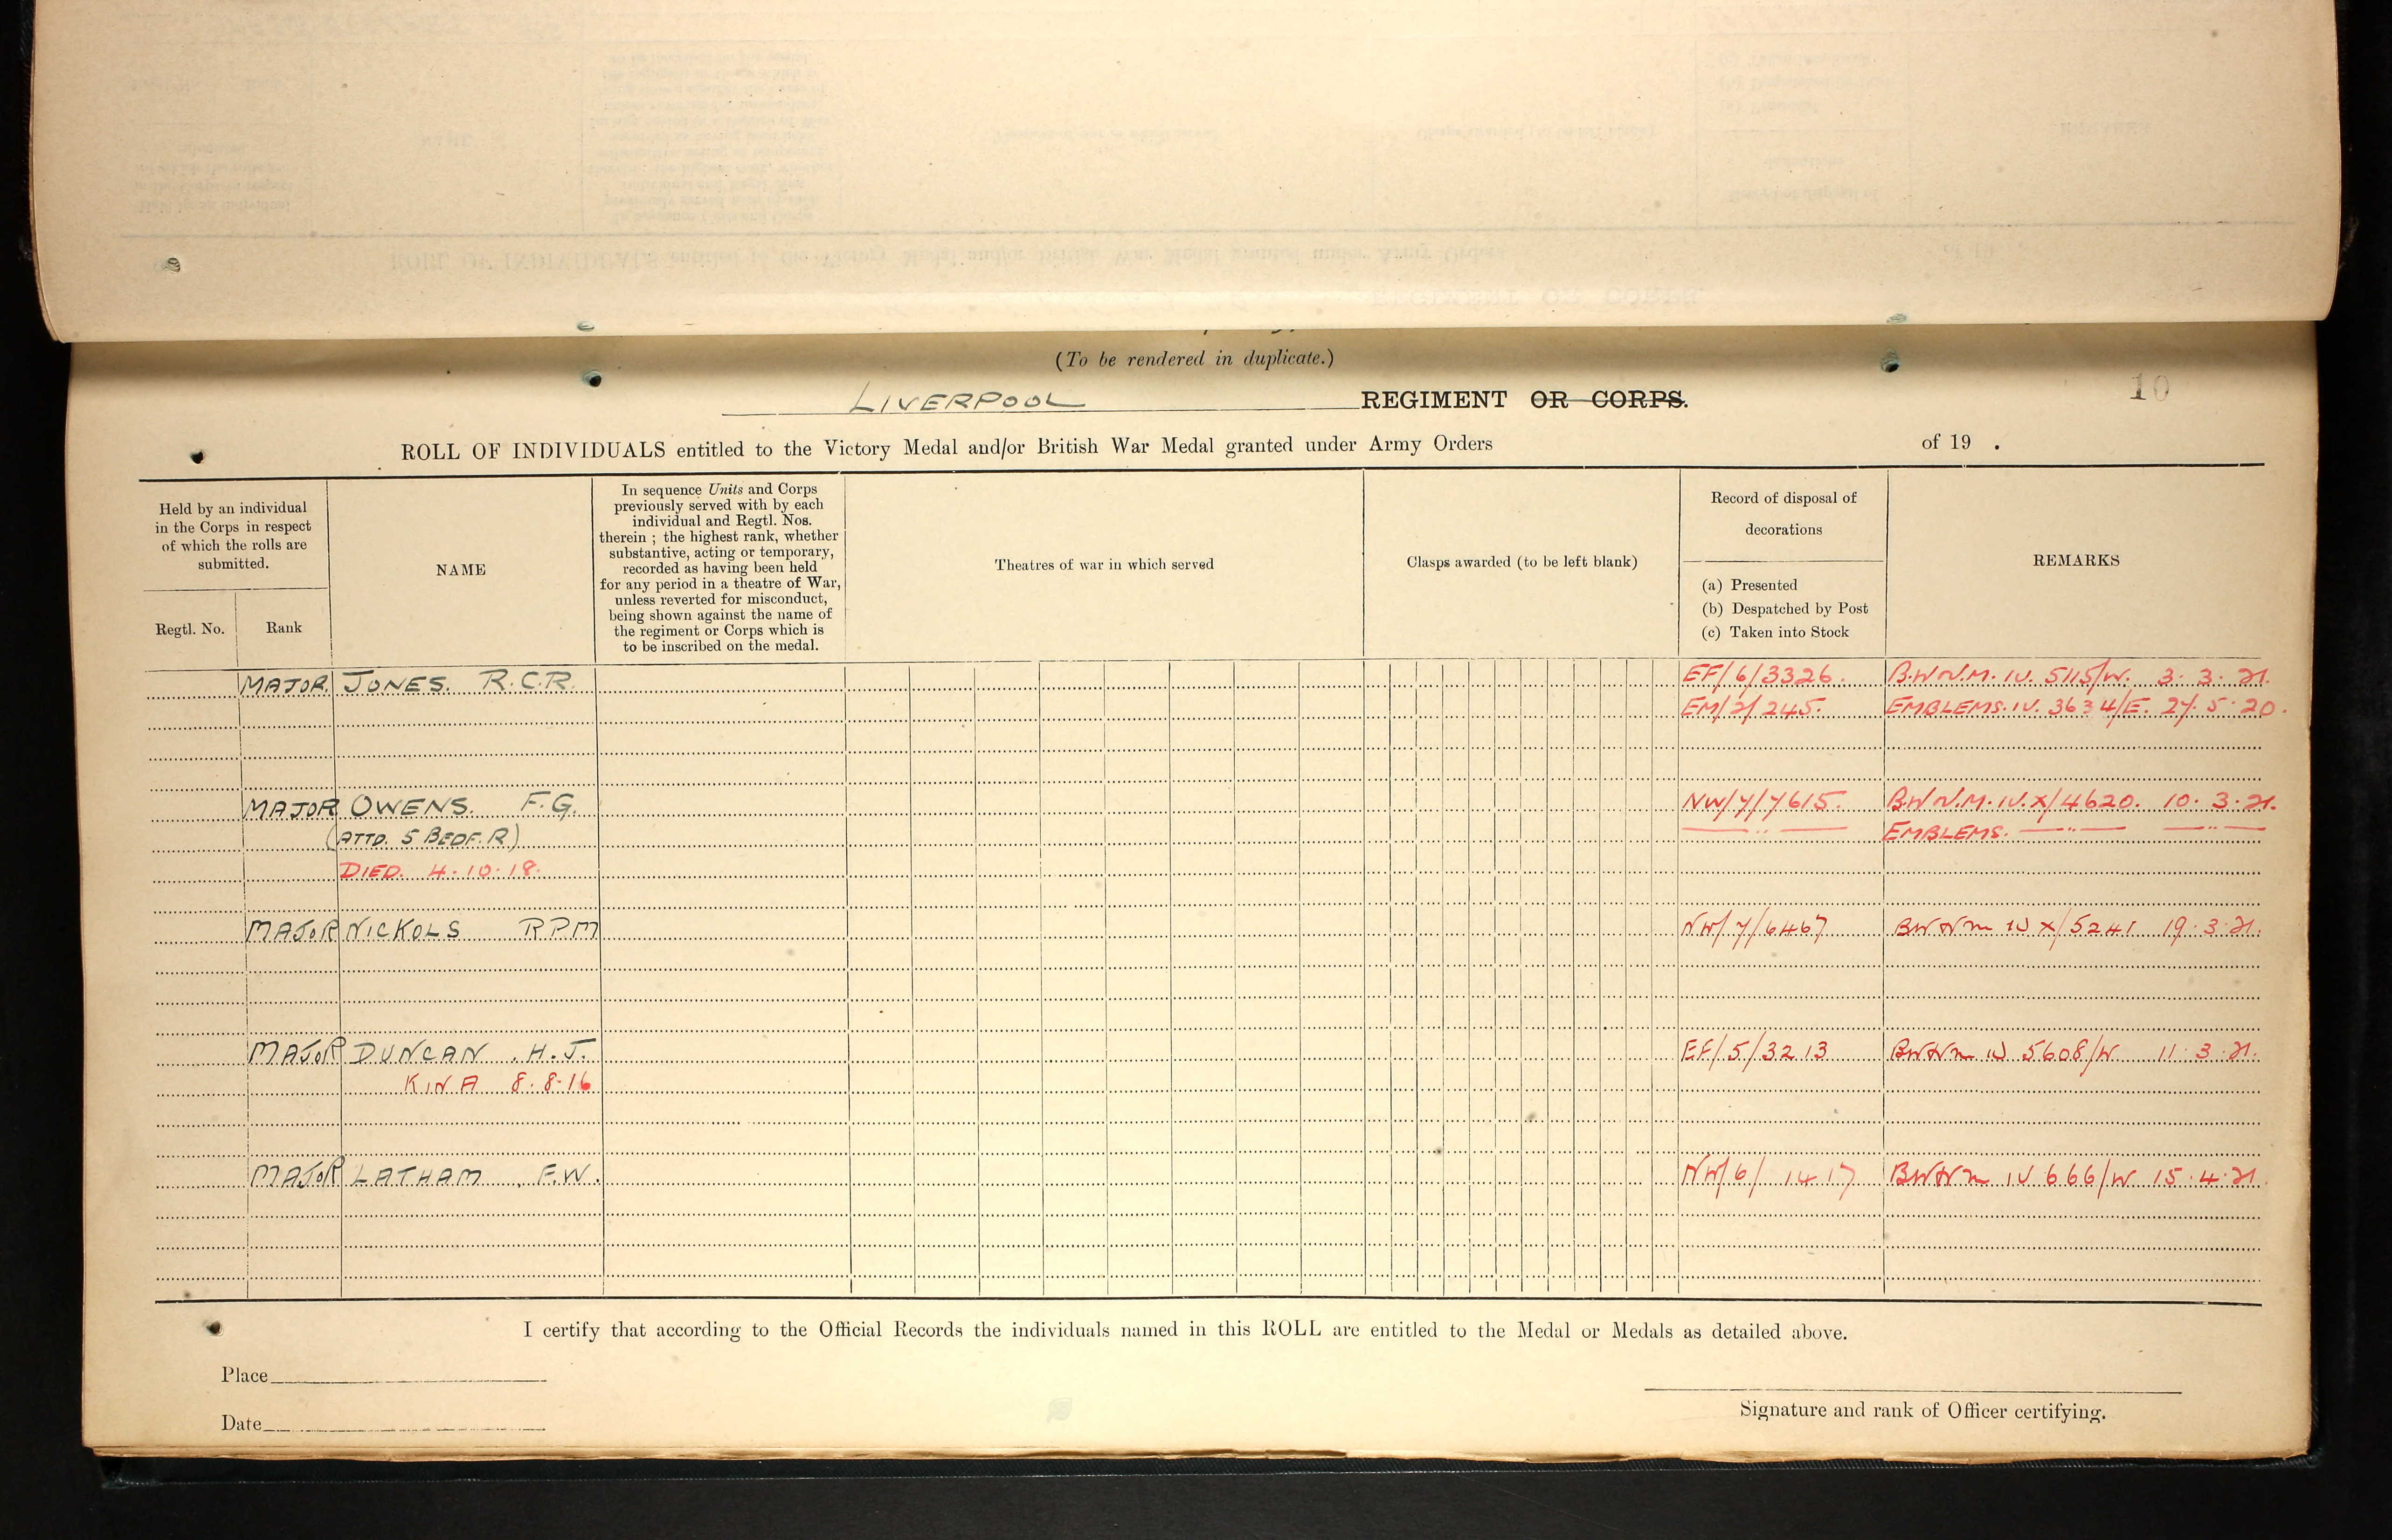 (To be rendered in duplicate.)
LIVERPOOL REGIMENT OR CORPS.
10
ROLL OF INDIVIDUALS entitled to the Victory Medal and/or British War Medal granted under Army Orders of 19 .
Held by an individual
in the Corps in respect
of which the rolls are
submitted.
Regtl. No.
Rank
NAME
In sequence Units and Corps
previously served with by each
individual and Regtl. Nos.
therein ; the highest rank, whether
substantive, acting or temporary,
recorded as having been held
for any period in a theatre of War,
unless reverted for misconduct,
being shown against the name of
the regiment or Corps which is
to be inscribed on the medal.
Theatres of war in which served
Clasps awarded (to be left blank)
Record of disposal of
decorations
(a) Presented
(b) Despatched by Post
(c) Taken into Stock
REMARKS
MAJOR JONES. R.C.R. EF/6/3326. B.W.V.M. IV. 5115/W. 3.3.21.
EM/2/245. EMBLEMS. IV. 3634/E. 27.5.20.
MAJOR OWENS. F.G. NW/7/7615. B.W.V.M. IV. X/4620. 10.3.21.
(ATTD. 5 BEDF. R) —"— EMBLEMS. —"— —"—
DIED. 4.10.18.
MAJOR NICKOLS RPM NW/7/6467 BWVM IV X/5241 19.3.21.
MAJOR DUNCAN . H.J. EF/5/3213 BWVM IV 5608/W 11.3.21.
K IN A 8.8.16
MAJOR LATHAM . F.W. NW/6/1417 BWVM IV 666/W 15.4.21.
I certify that according to the Official Records the individuals named in this ROLL are entitled to the Medal or Medals as detailed above.
Place
Date
Signature and rank of Officer certifying.